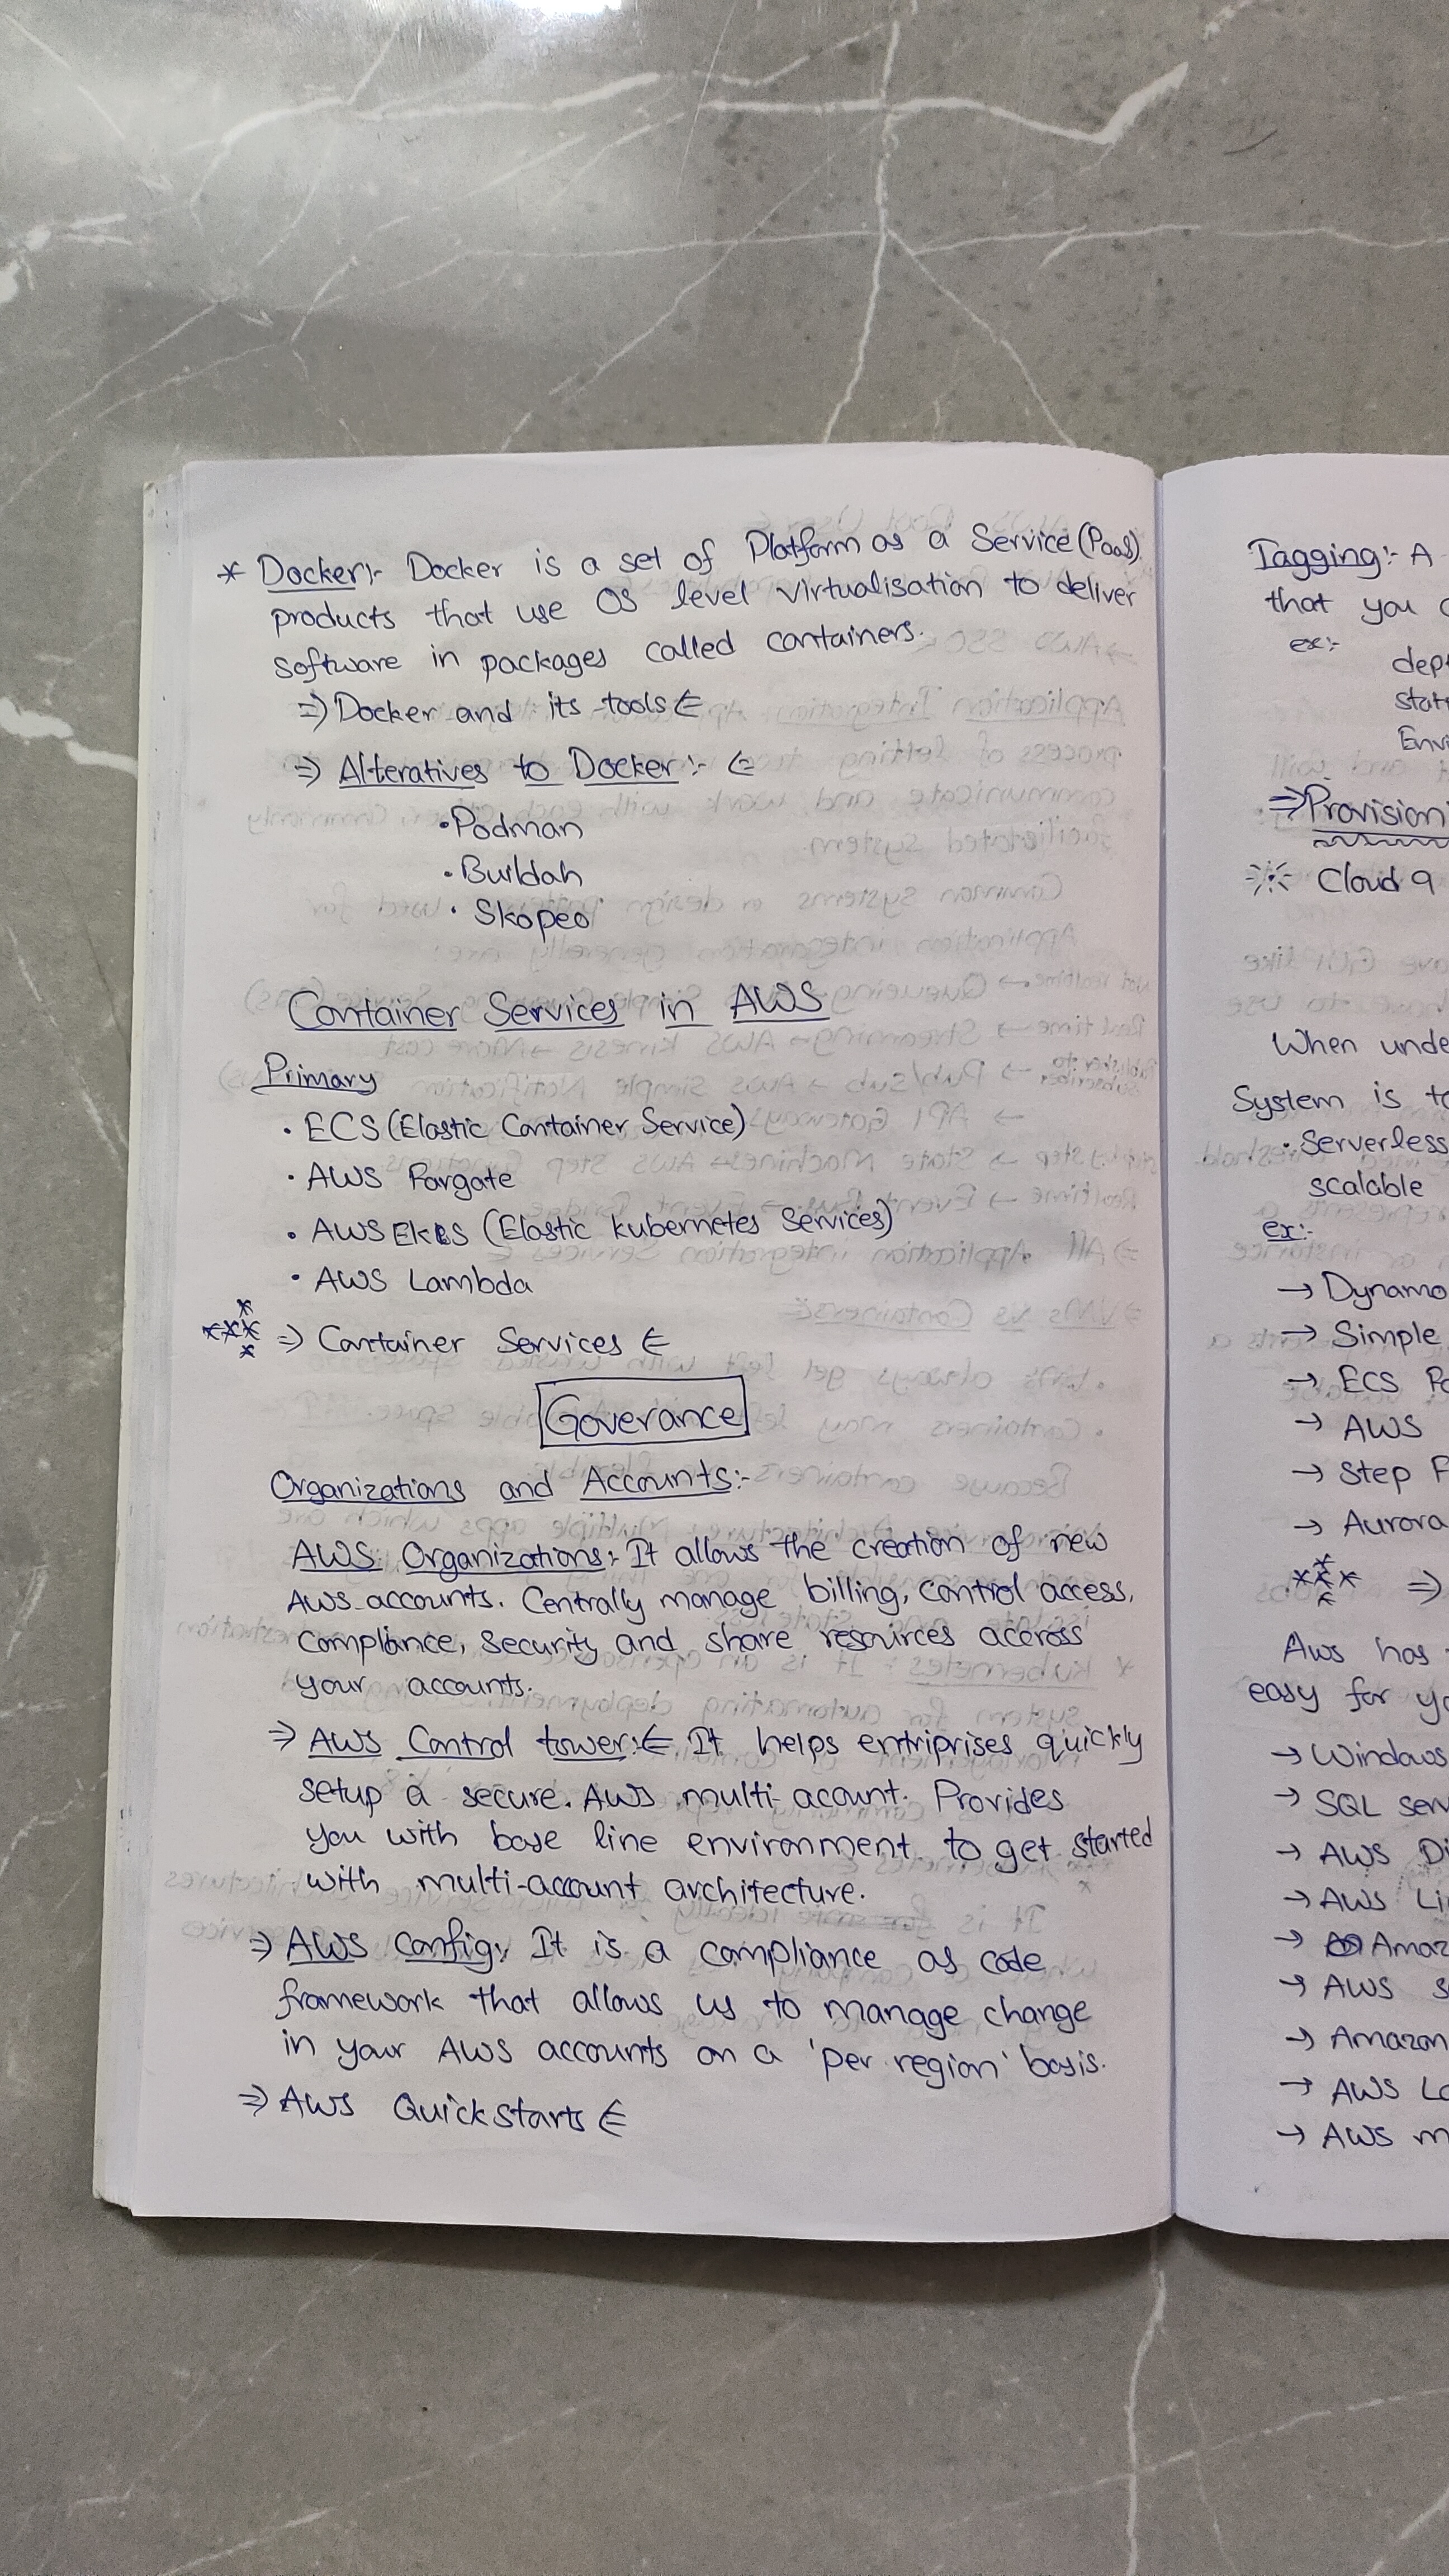 * Docker:- Docker is a set of Platform as a Service (PaaS)
products that use OS level virtualisation to deliver
software in packages called containers.
⇒ Docker and its tools ⋲
⇒ Alteratives to Docker:- ⋲
• Podman
• Buildah
• Skopeo
Container Services in AWS
Primary
• ECS (Elastic Container Service)
• AWS Fargate
• AWS EKS (Elastic kubernetes Services)
• AWS Lambda
***** ⇒ Container Services ⋲
Goverance
Organizations and Accounts:-
AWS Organizations:- It allows the creation of new
AWS accounts. Centrally manage billing, control access,
compliance, security and share resources accross
your accounts.
⇒ AWS Control tower:⋲ It helps entriprises quickly
setup a secure. AWS multi-acount. Provides
you with base line environment to get started
with multi-account architecture.
⇒ AWS Config:- It is a compliance as code
framework that allows us to manage change
in your AWS accounts on a 'per region' basis.
⇒ AWS Quickstarts ⋲
Tagging:- A
that you
ex:-
dep
stat
Envi
⇒ Provision
Cloud 9
When unde
System is to
• Serverless
scalable
ex:-
→ Dynamo
→ Simple
→ ECS
→ AWS
→ Step F
→ Aurora
***** ⇒
Aws has
easy for yo
→ Windows
→ SQL serv
→ AWS Di
→ AWS Li
→ Amaz
→ AWS S
→ Amazon
→ AWS Lo
→ AWS m